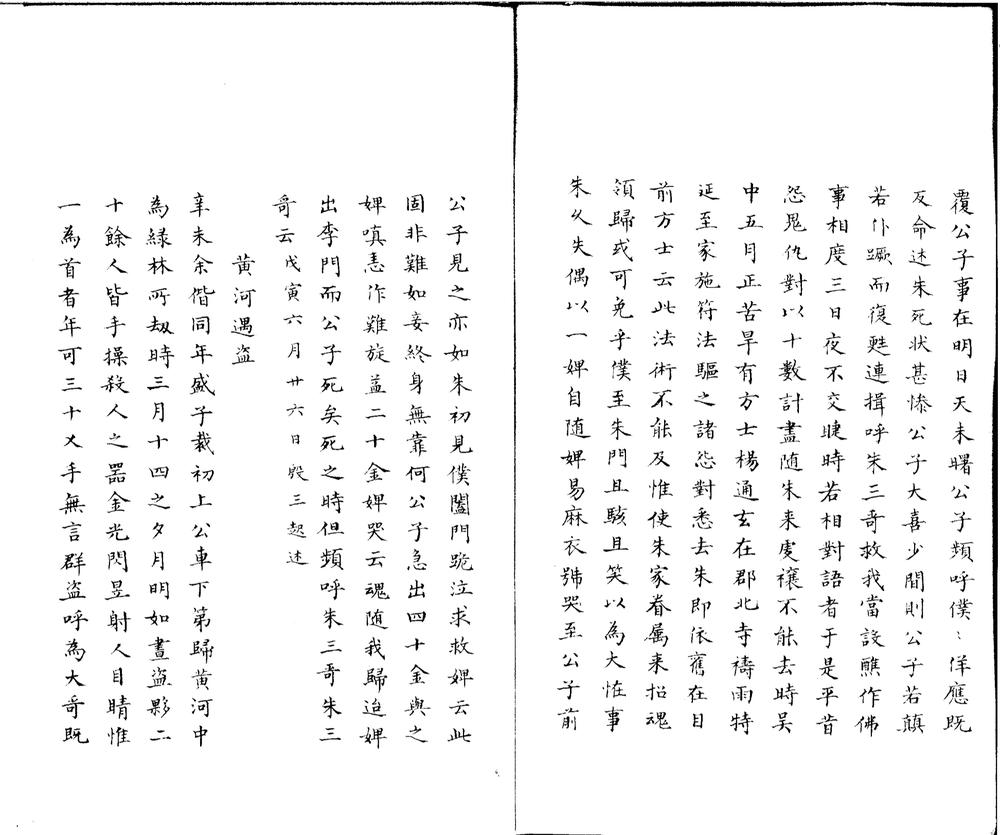 覆公子事在明日天未曙公子頻呼僕〻佯應既
反命述朱死状甚慘公子大喜少間則公子若顛
若仆蹶而復甦連揖呼朱三哥救我當設醮作佛
事相度三日夜不交睫時若相對語者于是平昔
怨鬼仇對以十數計盡随朱来虔禳不能去時吴
中五月正苦旱有方士楊通玄在郡北寺禱雨特
延至家施符法驅之諸怨對悉去朱即依舊在目
前方士云此法術不能及惟使朱家眷属来招魂
領歸或可免乎僕至朱門且駭且笑以為大怪事
朱久失偶以一婢自随婢易麻衣號哭至公子前
公子見之亦如朱初見僕闔門跪泣求救婢云此
固非難如妾終身無靠何公子急出四十金與之
婢嗔恚作難旋益二十金婢哭云魂随我歸迨婢
出李門而公子死矣死之時但頻呼朱三哥朱三
哥云戊寅六月廿六日殷三趨述
黄河遇盗
辛未余偕同年盛子裁初上公車下第歸黄河中
為緑林所刼時三月十四之夕月明如晝盗夥二
十餘人皆手操殺人之器金光閃昱射人目睛惟
一為首者年可三十乂手無言群盗呼為大哥既